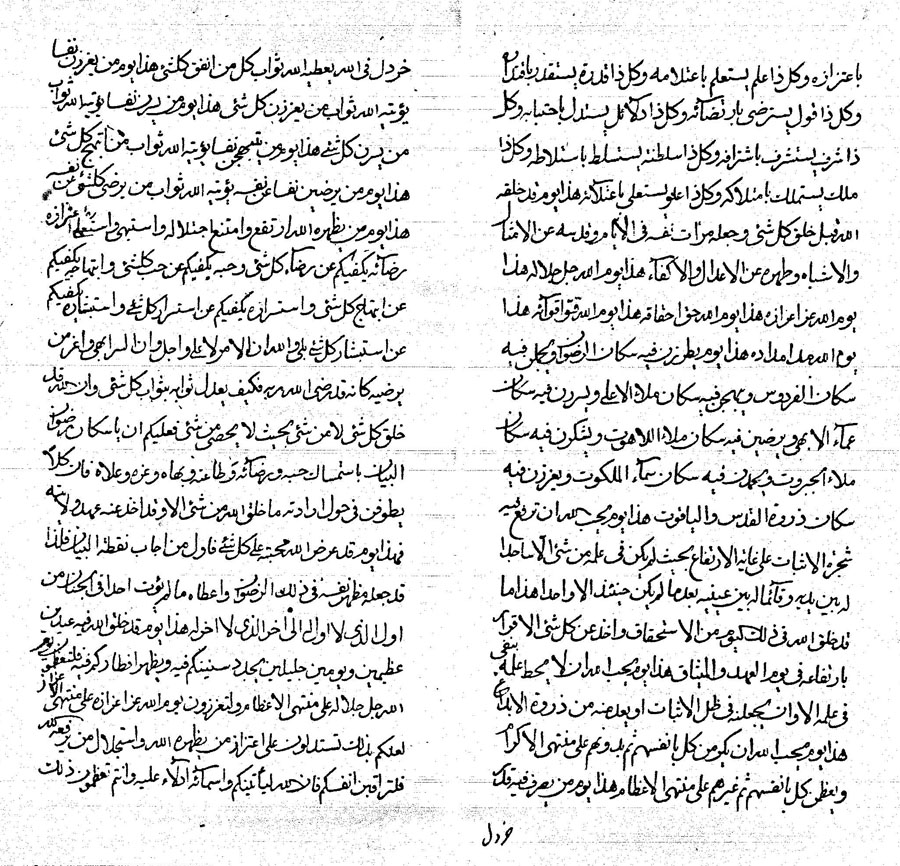 باعتزازه وكل ذا علم يستعلم باعتلامه وكل ذا قدرة يستقدر باقتداره
وكل ذا قول يسترضى بارتضائه وكل ذا دلائل يستدل باجتبابه وكل
ذا شرف يستشرف باشترافه وكل ذا سلطنة يستسلط باستلاطه وكل ذا
ملك يستملك بامتلاكه وكل ذا علو يستعلى باعتلائه هذا يوم قد خلقه
الله قبل خلق كل شئ وجعله مرات نفسه في الأيام وقدسه عن الامثال
والاشباه وطهره عن الاعدال والاكفاء هذا يوم الله جل جلاله هذا
يوم الله عز اعزازه هذا يوم الله حق احقاقه هذا يوم الله هذا
يوم الله هذا يوم يطرزن فيه سكان الرضوان فيه
سكان الفردوس ويبهجن فيه سكان ملاء الاعلى ويسرون فيه سكان
عماء الابهى ويرضين فيه سكان ملاء اللاهوت ويشكرن فيه سكان
ملاء الجبروت ويحمدن فيه سكان سماء الملكوت ويعززن فيه
سكان ذروة القدس والياقوت هذا يوم يحب الله ان ترتفع فيه
شجرة الاثبات على غاية الارتفاع بحيث لم يكن في علمه من شئ الا ساجدا
له بين يديه وقائما له بين عينيه بعد ما لم يكن حينئذ الا واحدا هذا ما
قد خلق الله في ذلك اليوم من الاستحقاق واخذ عن كل شئ الاقرار
بارتفاعه في يوم العهد والميثاق هذا يوم يحب الله ان لا يحط علمه
في علمه الا وان يجعلنه في ظل الاثبات او يعدمنه من ذروة الابداع
هذا يوم يحب الله ان يكرمن كل بانفسهم ثم بدونهم على منتهى الاكرام
ويعظمن كل بانفسهم ثم غيرهم على منتهى الاعظام هذا يوم من يصرف فيه قدر
خردل
خردل في الله يعطيه الله ثواب كل من انفق كلشئ هذا يوم من يعززن نفسا
يؤتيه الله ثواب من يعززن كل شئ هذا يوم من يسرن نفسا يؤتيه الله ثواب
من يسرن كل شئ هذا يوم من يبهجن نفسا يؤتيه الله ثواب من ابتهج كل شئ
هذا يوم من يرضين نفسا عن نفسه يؤتيه الله ثواب من يرضى كلشئ عن نفسه
هذا يوم من يظهره الله ارتفع وامتنع اجتلاله واستبهى واستعلى اعتزازه
رضائه يكفيكم عن رضاء كل شئ وحبه يكفيكم عن حب كلشئ وابتهاجه يكفيكم
عن ابتهاج كل شئ واستراره يكفيكم عن استرار كل شئ واستبشاره يكفيكم
عن استبشار كل شئ بلى والله ان الامر لاعلى واجل وان الرابهى واعز من
يرضيه كانه قد رضى الله ربه فكيف يعدل ثوابه بثواب كل شئ وان الله قد
خلق كل شئ لا من شئ بحيث لا يحصى من شئ فعليكم ان يا سكان رضوان
البيان باستمساك حبه ورضائه وطاعته وبهاه وعزه وعلاه فان كلا
يطوفن في حول ارادته ما خلق الله من شئ الا وقد اخذ عنه عهد ولاية
فهذا يوم قد عرض الله محبته على كل شئ فاول من اجاب نقطة البيان فلذا
قد جعله مظهر نفسه في ذلك الرضوان واعطاه ما لم يؤت احدا في الجنان من
اول الذي لا اول الى آخر الذي لا آخر له هذا يوم قد خلق الله فيه عدين
عظيمين ويومين جليلين يجدد سنينكم فيه ويظهر افطاركم فيه فلتعظمن يوم
الله جل جلاله على منتهى الاعظام ولتعززون يوم الله عز اعزازه على منتهى الاعزاز
لعلكم بذلك تستدلون على اعتزاز من يظهره الله واستجلال من يرفعه الله
فلتراقبن انفسكم فان الله ليأتينكم واسمائه ادلاء عليه وانتم تعظمون ذلك